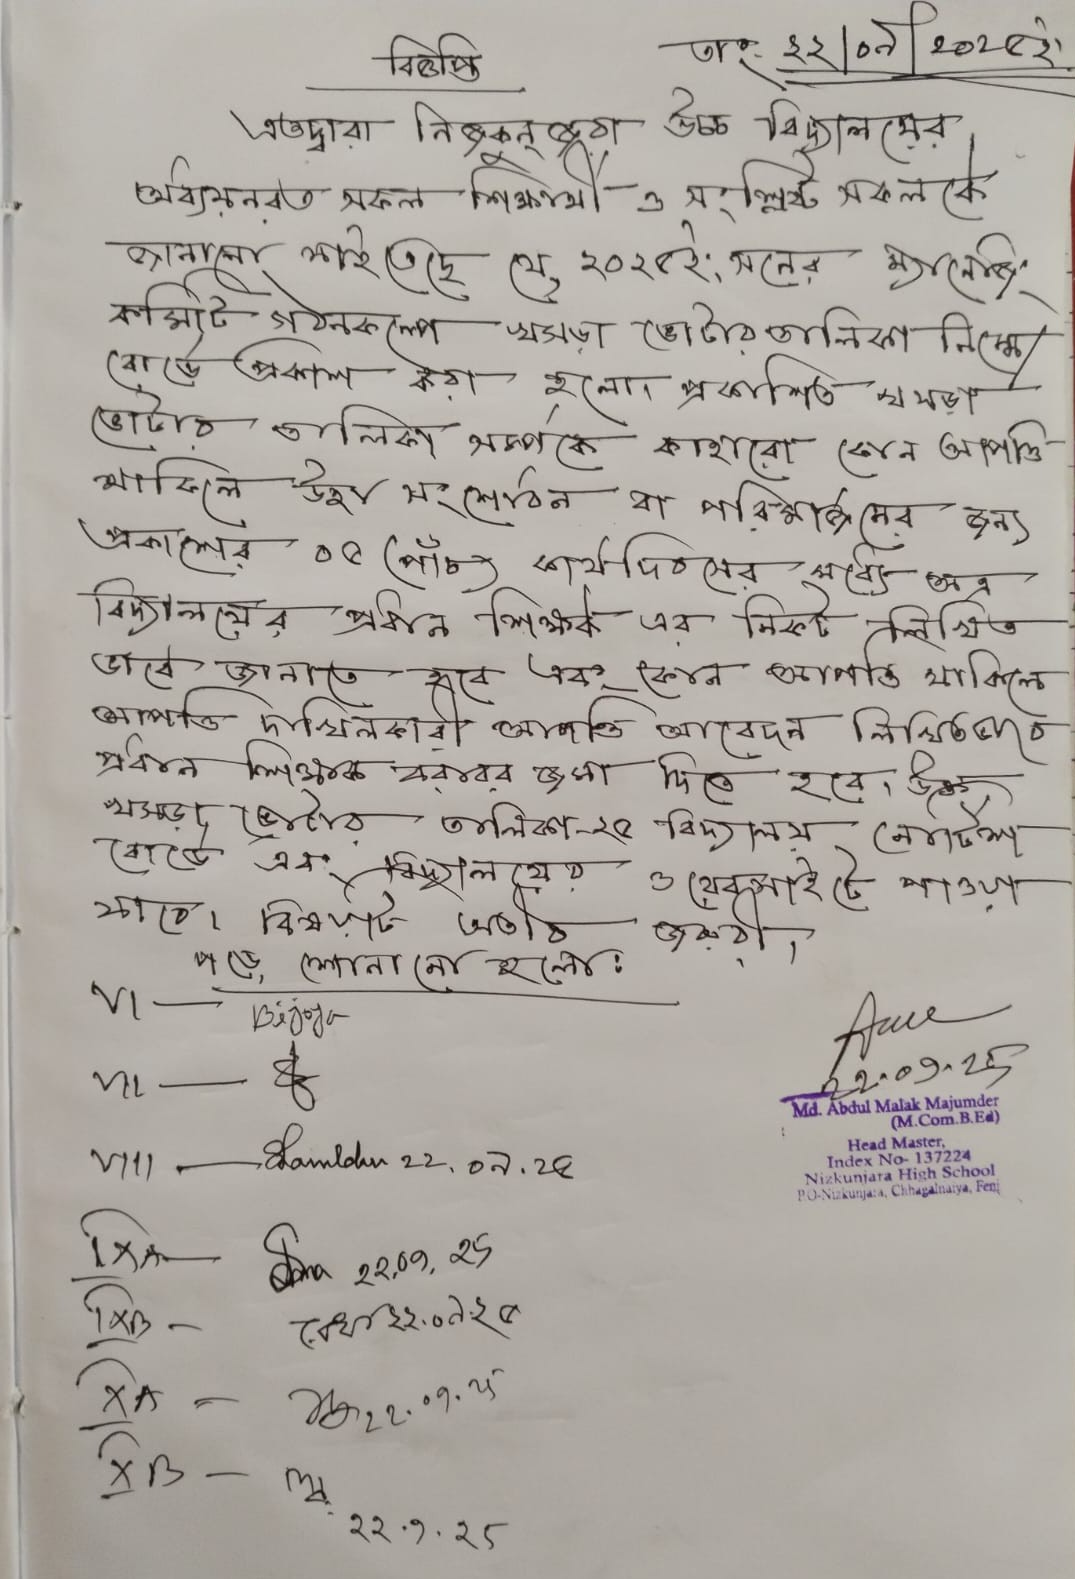 বিজ্ঞপ্তি
তাং- ২২/০৯/২০২৫ইং
এতদ্বারা নিজকুনজরা উচ্চ বিদ্যালয়ের
অধ্যয়নরত সকল শিক্ষার্থী ও সংশ্লিষ্ট সকলকে
জানানো যাইতেছে যে, ২০২৫ইং সনের ম্যানেজিং
কমিটি গঠনকল্পে খসড়া ভোটার তালিকা নিম্মে
বোর্ডে প্রকাশ করা হলো। প্রকাশিত খসড়া
ভোটার তালিকা সম্পর্কে কাহারো কোন আপত্তি
থাকিলে উহা সংশোধন বা পরিমার্জনের জন্য
প্রকাশের ০৫ (পাঁচ) কার্যদিবসের মধ্যে অত্র
বিদ্যালয়ের প্রধান শিক্ষক এর নিকট লিখিত
ভাবে জানাতে হবে এবং কোন আপত্তি থাকিলে
আপত্তি দাখিলকারী আপত্তি আবেদন লিখিতভাবে
প্রধান শিক্ষক বরাবর জমা দিতে হবে। উক্ত
খসড়া ভোটার তালিকা-২৫ বিদ্যালয় নোটিশ
বোর্ডে এবং বিদ্যালয়ের ওয়েবসাইটে পাওয়া
যাবে। বিষয়টি অতীব জরুরী।
পড়ে শোনানো হলো:
VI — Bijoya
VII —
VIII — 22.09.25
22.09.25
Md. Abdul Malak Majumder
(M.Com.B.Ed)
Head Master,
Index No- 137224
Nizkunjara High School
P.O-Nizkunjara, Chhagalnaiya, Feni
IXA — 22.09.25
IXB — রেখা ২২.০৯.২৫
XA — 22.09.25
XB —
22.9.25